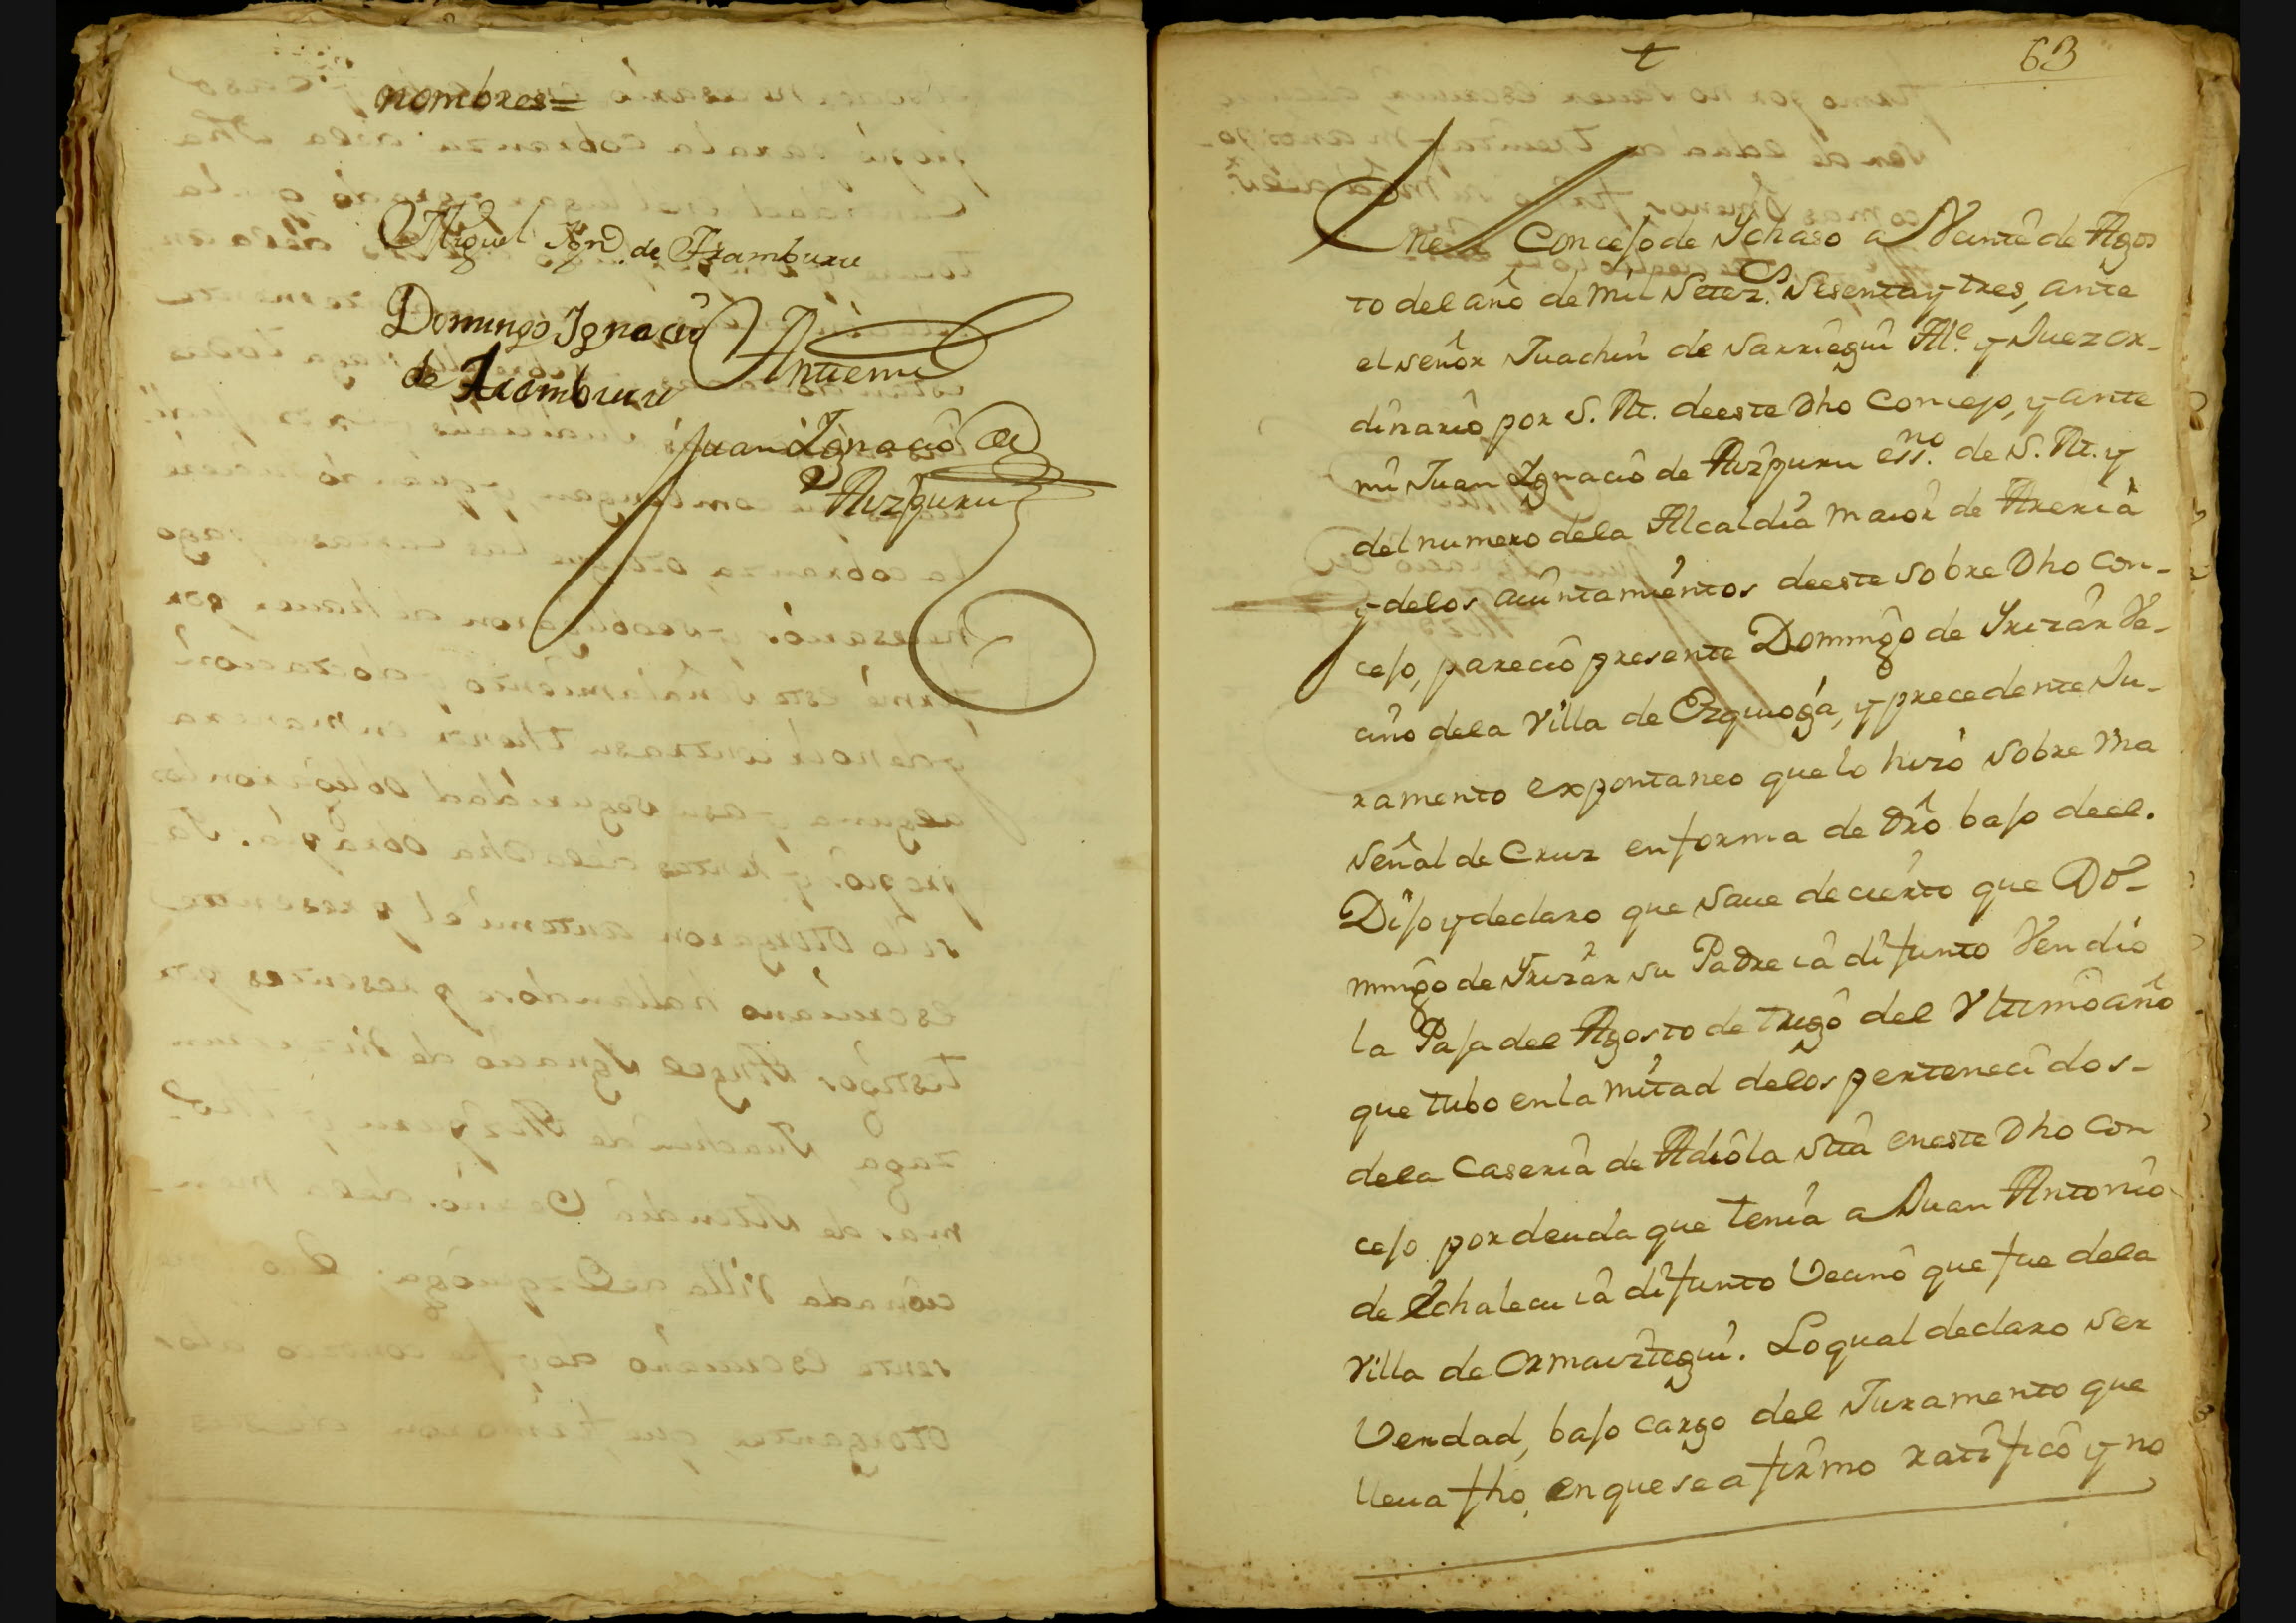 nombres=
Miguel Ign.º de Aramburu
Domingo Ignacio
de Aramburu
Antemi
Juan Ignacio de
Aizpuru
63
Enel Concejo de Ychaso a Veinte de Agos
to del año de mil Setez.s Sesenta y tres, ante
el señor Juachin de Sarriegui Al.e y Juez or-
dinario por S. M. deeste dho Concejo, y ante
mi Juan Ignacio de Aizpuru ess.no de S. M. y
del numero dela Alcaldia maior de Areria
y delos aiuntamientos deeste sobre dho Con-
cejo, parecio presente Domingo de Yrizar Ve-
cino dela Villa de Ezquioga, y precedente Ju-
ramento expontaneo que lo hizo sobre una
señal de Cruz enforma de dro bajo deel.
Dijo y declaro que saue decierto que Do-
mingo de Yrizar su Padre ia difunto Vendio
la Paja del Agosto de trigo del Vltimo año
que tubo enla mitad delos pertenecidos-
dela Caseria de Adiola sita eneste dho Con
cejo por deuda que tenia a Juan Antonio
de Echalecu ia difunto Vecino que fue dela
Villa de Ormaiztegui. Loqual declaro ser
Verdad, bajo cargo del Juramento que
lleua fho, en que se afirmo ratifico y no